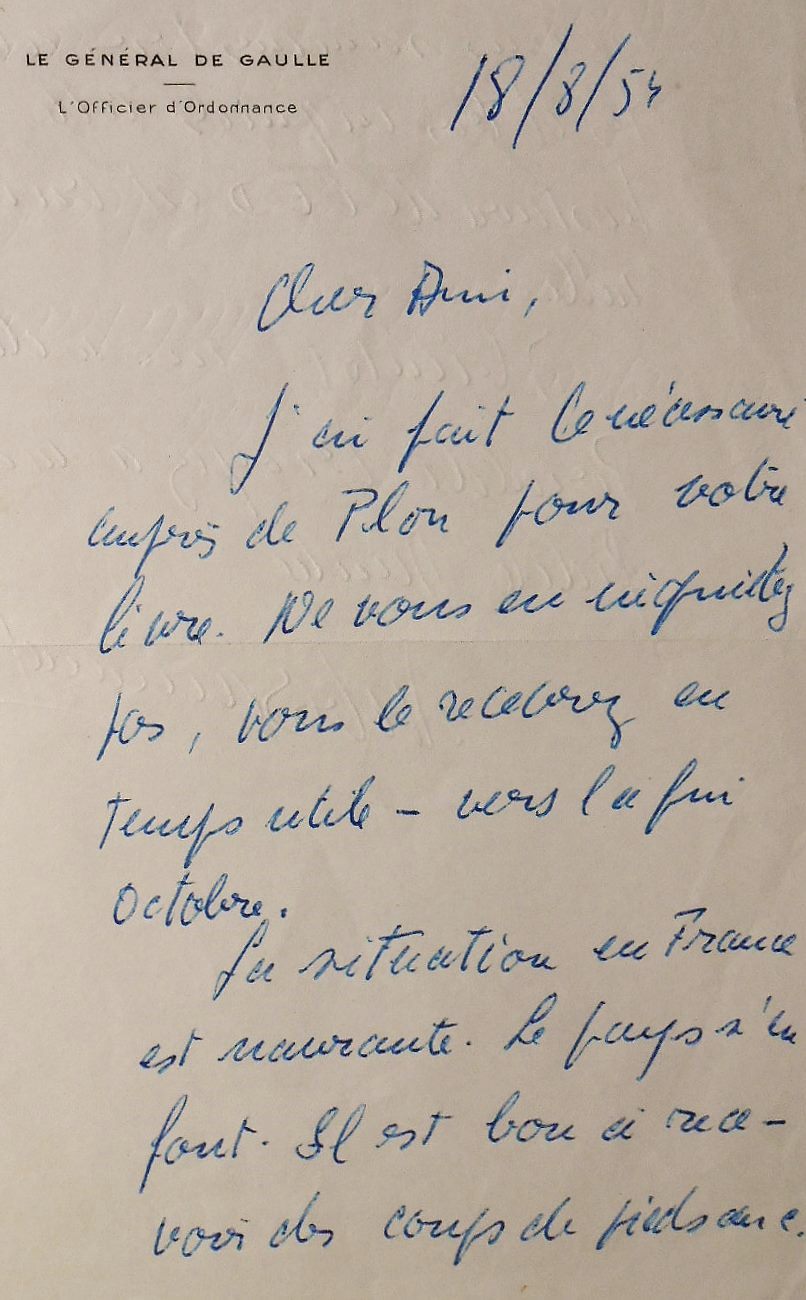 LE GÉNÉRAL DE GAULLE
L'Officier d'Ordonnance
18/8/54
Cher Ami,
J'ai fait le nécessaire
auprès de Plon pour votre
livre. Ne vous en inquiétez
pas, vous le recevrez en
temps utile – vers la fin
Octobre.
La situation en France
est navrante. Le pays s'en
fout. Il est bon à rece-
voir des coups de pieds au c.